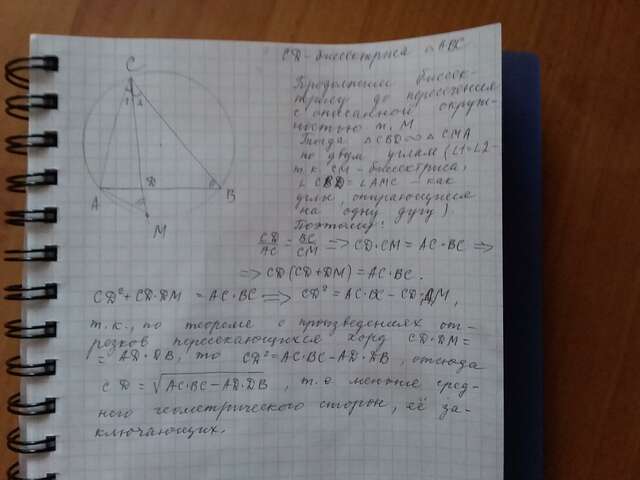 CD - биссектриса △ABC
C
1 2
A
D
B
M
Продолжим биссек-
трису до пересечения
с описанной окруж-
ностью т. M
Тогда △CBD ∾ △CMA
по двум углам (∠1=∠2-
т.к. CM - биссектриса,
∠CBD = ∠AMC - как
углы, опирающиеся
на одну дугу).
Поэтому:
CD/AC = BC/CM ⟹ CD·CM = AC·BC ⟹
⟹ CD(CD+DM) = AC·BC.
CD²+CD·DM = AC·BC ⟹ CD² = AC·BC - CD·DM,
т.к., по теореме о произведениях от-
резков пересекающихся хорд CD·DM =
= AD·DB, то CD² = AC·BC - AD·DB, отсюда
CD = √(AC·BC - AD·DB), т.е меньше сред-
него геометрического сторон, её за-
ключающих.